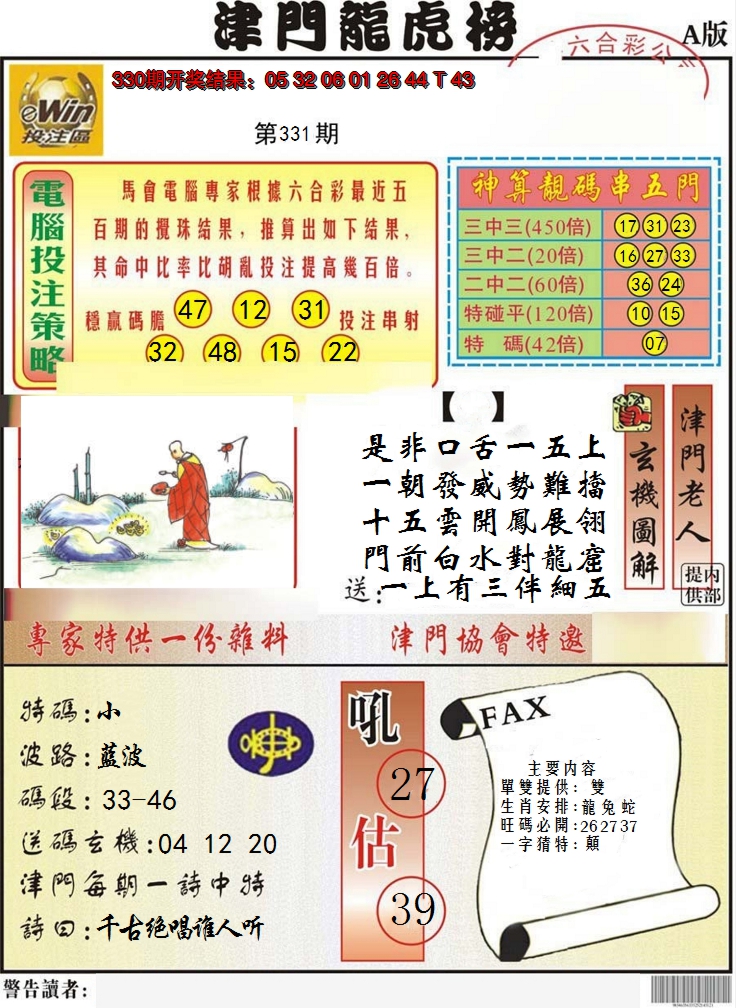 津門龍虎榜
六合彩公
A版
330期开奖结果：05 32 06 01 26 44 T 43
eWin
投注區
第331期
電腦投注策略
馬會電腦專家根據六合彩最近五
百期的攪珠结果，推算出如下结果，
其命中比率比胡亂投注提高幾百倍。
穩贏碼膽 47 12 31 投注串射
32 48 15 22
神算靚碼串五門
三中三(450倍) 17 31 23
三中二(20倍) 16 27 33
二中二(60倍) 36 24
特碰平(120倍) 10 15
特 碼(42倍) 07
【 】
是非口舌一五上
一朝發威勢難擋
十五雲開鳳展翎
門前白水對龍窟
送：一上有三伴細五
玄機圖解
津門老人
内部
提供
專家特供一份雜料
津門協會特邀
特碼：小
波路：藍波
碼段：33-46
送碼玄機：04 12 20
津門每期一詩中特
詩曰：千古绝唱谁人听
吼
27
估
39
FAX
主要内容
單雙提供：雙
生肖安排：龍兔蛇
旺碼必開：262737
一字猜特：顛
警告讀者：